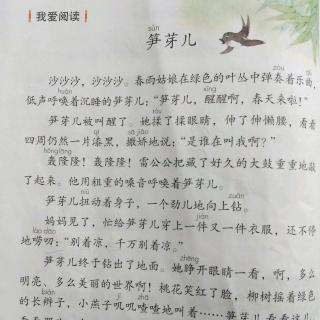 我爱阅读
sǔn
笋芽儿
zòu
沙沙沙，沙沙沙。春雨姑娘在绿色的叶丛中弹奏着乐曲，
huàn xǐng
低声呼唤着沉睡的笋芽儿：“笋芽儿，醒醒啊，春天来啦！”
笋芽儿被叫醒了。她揉了揉眼睛，伸了伸懒腰，看看
qī sā jiāo
四周仍然一片漆黑，撒娇地说：“是谁在叫我啊？”
hōng lōng
轰隆隆！轰隆隆！雷公公把藏了好久的大鼓重重地敲
了起来。他用粗重的嗓音呼唤着笋芽儿。
zuān
笋芽儿扭动着身子，一个劲儿地向上钻。
jiàn
妈妈见了，忙给笋芽儿穿上一件又一件衣服，还不停
láo dao
地唠叨：“别着凉，千万别着凉。”
zhēng
笋芽儿终于钻出了地面。她睁开眼睛一看，啊，多么
明亮、多么美丽的世界啊！桃花笑红了脸，柳树摇着绿色
jī zhā
的长辫子，小燕子叽叽喳喳地叫着……笋芽儿看看这儿，